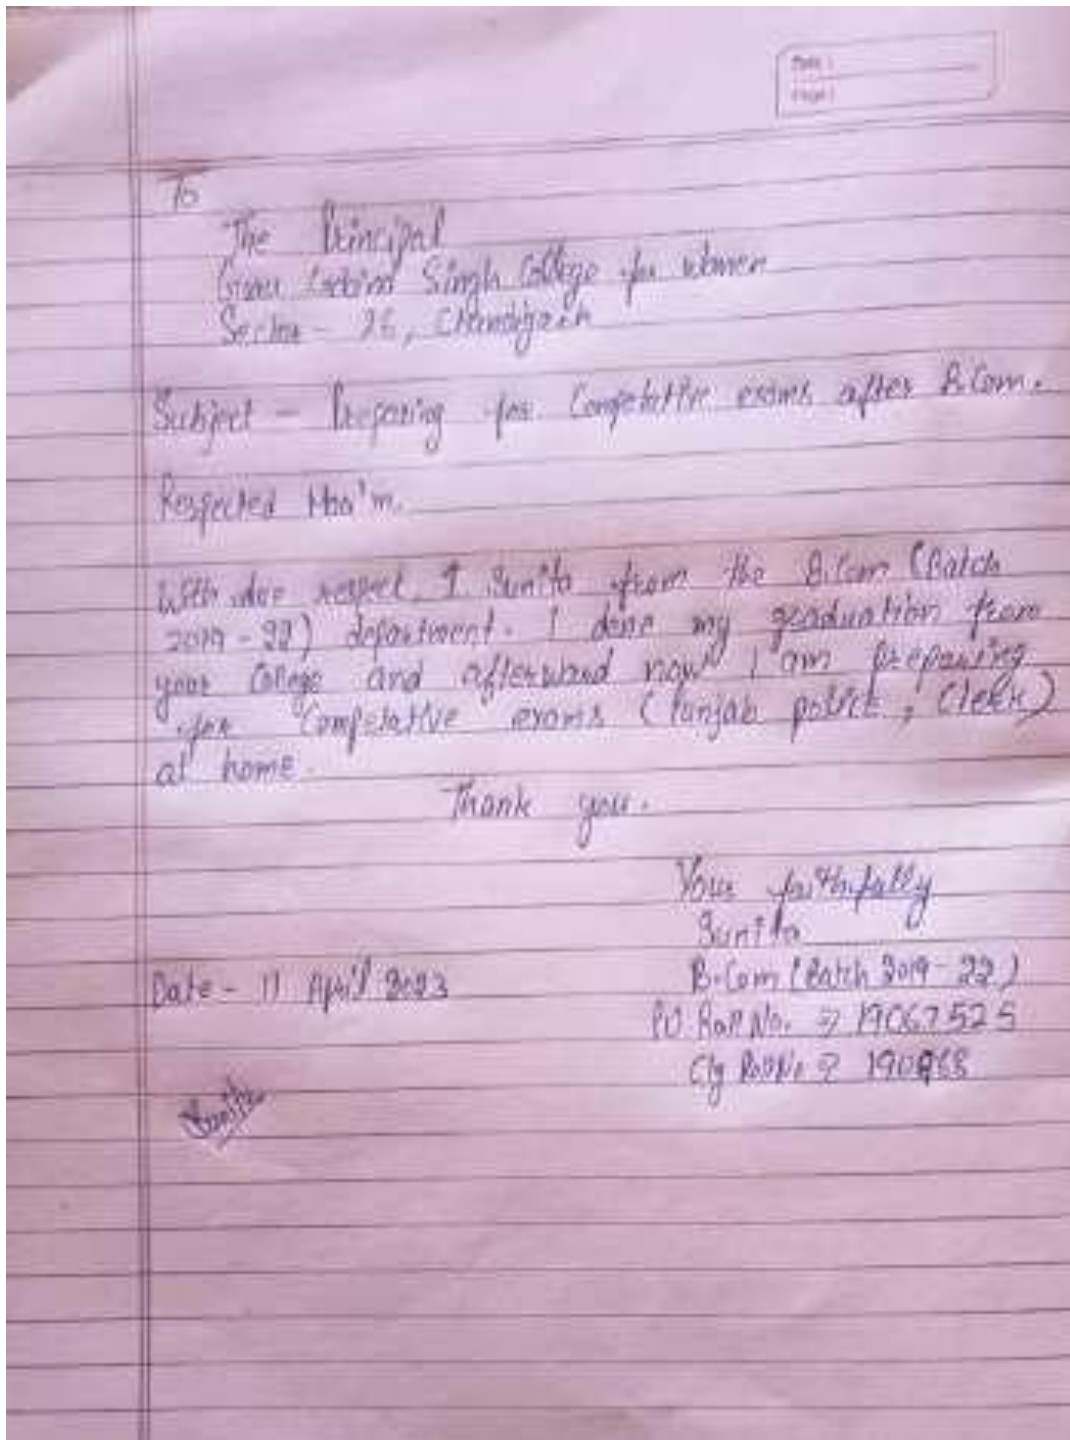 Date :
Page :
To
The Principal
Guru Gobind Singh College for women
Sector - 26, Chandigarh
Subject - Preparing for Competative exams after B.Com.
Respected Maa'm,
With due respect I Sunita from the B.Com (Batch
2019-22) department. I done my graduation from
your College and afterward now I am preparing
for Competative exams (Punjab police, Clerk)
at home.
Thank you.
Your faithfully
Sunita
B.Com (Batch 2019-22)
Date - 11 April 2023
PU Roll No. => 19067525
Clg Roll No =>
Sunita